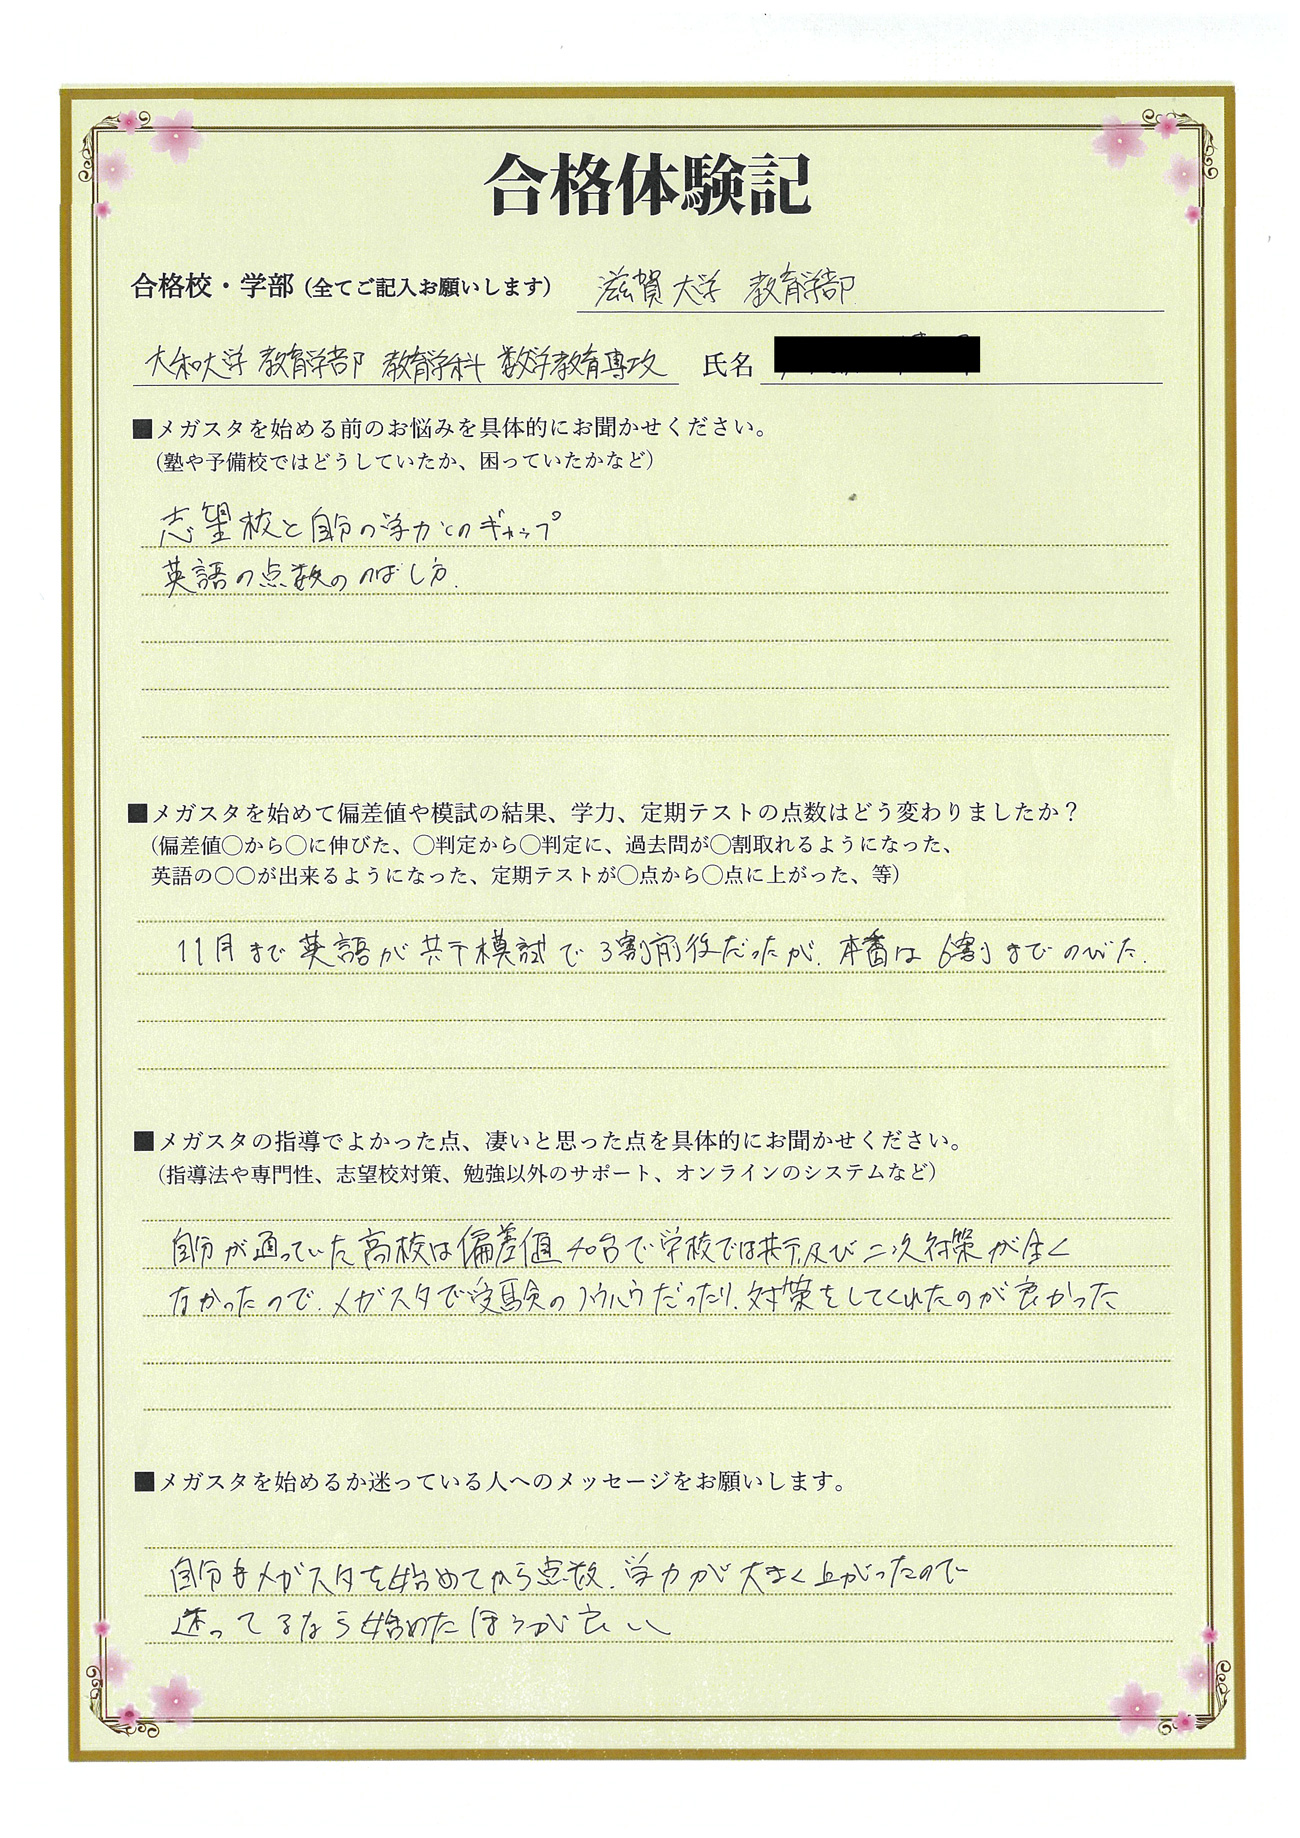 合格体験記
合格校・学部（全てご記入お願いします） 滋賀大学 教育学部
大和大学 教育学部 教育学科 数学教育専攻 氏名
■メガスタを始める前のお悩みを具体的にお聞かせください。
（塾や予備校ではどうしていたか、困っていたかなど）
志望校と自分の学力とのギャップ
英語の点数ののばし方.
■メガスタを始めて偏差値や模試の結果、学力、定期テストの点数はどう変わりましたか？
（偏差値〇から〇に伸びた、〇判定から〇判定に、過去問が〇割取れるようになった、
英語の〇〇が出来るようになった、定期テストが〇点から〇点に上がった、等）
11月まで英語が共テ模試で3割前後だったが、本番は6割までのびた.
■メガスタの指導でよかった点、凄いと思った点を具体的にお聞かせください。
（指導法や専門性、志望校対策、勉強以外のサポート、オンラインのシステムなど）
自分が通っていた高校は偏差値40台で学校では共テ及び二次対策が全く
なかったので、メガスタで受験のノウハウだったり、対策をしてくれたのが良かった
■メガスタを始めるか迷っている人へのメッセージをお願いします。
自分もメガスタを始めてから点数、学力が大きく上がったので
迷ってるなら始めたほうが良い